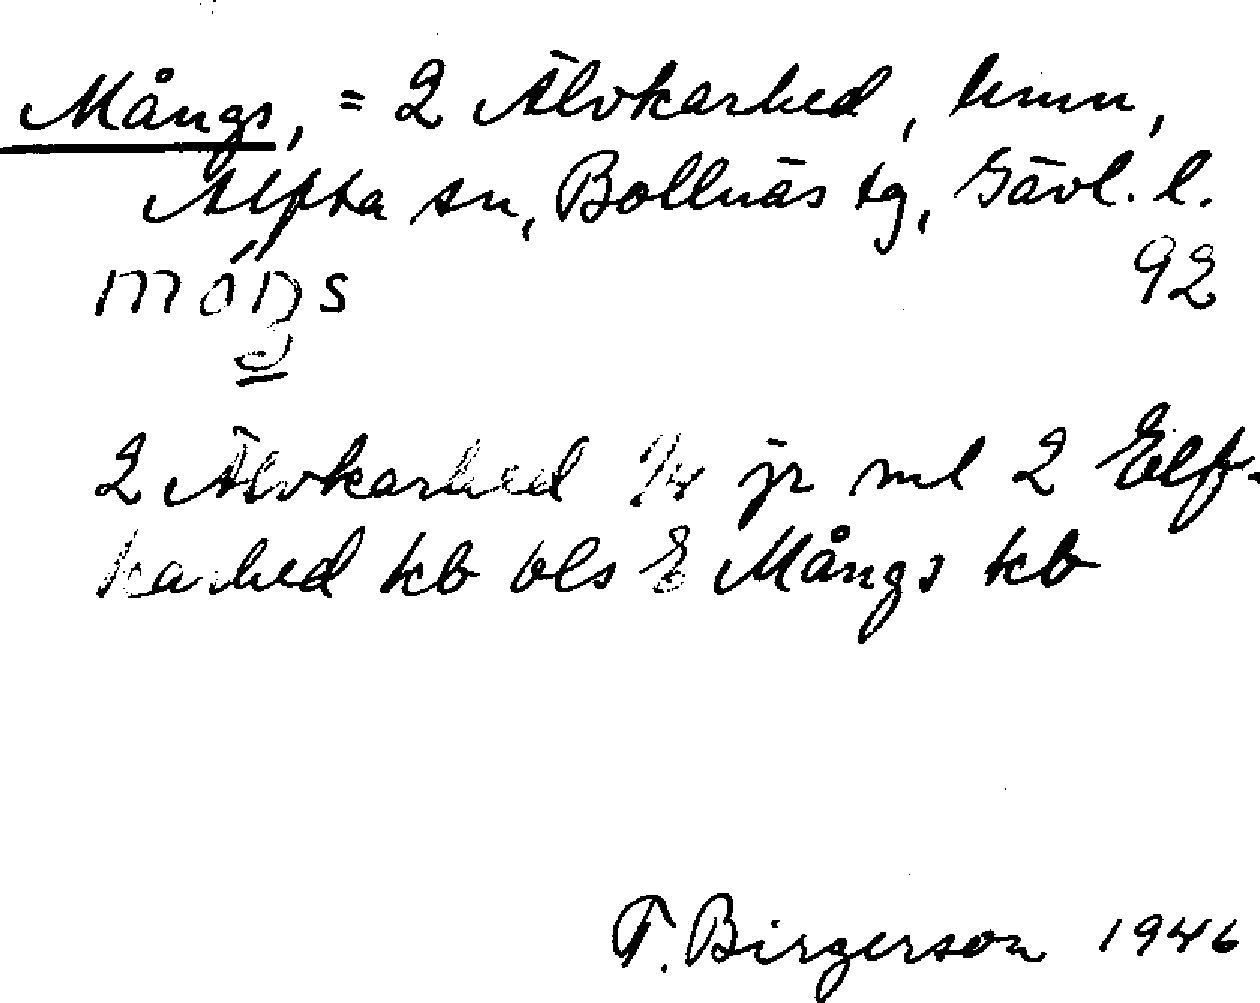 Mångs, = 2 Älvkarhed, hmn,
Alfta sn, Bollnäs tg, Gävl. l.
móŋs 92
2 Älvkarhed 1/4 jr ml 2 Elf-
karhed kb bls E Mångs kb
F. Birgerson 1946